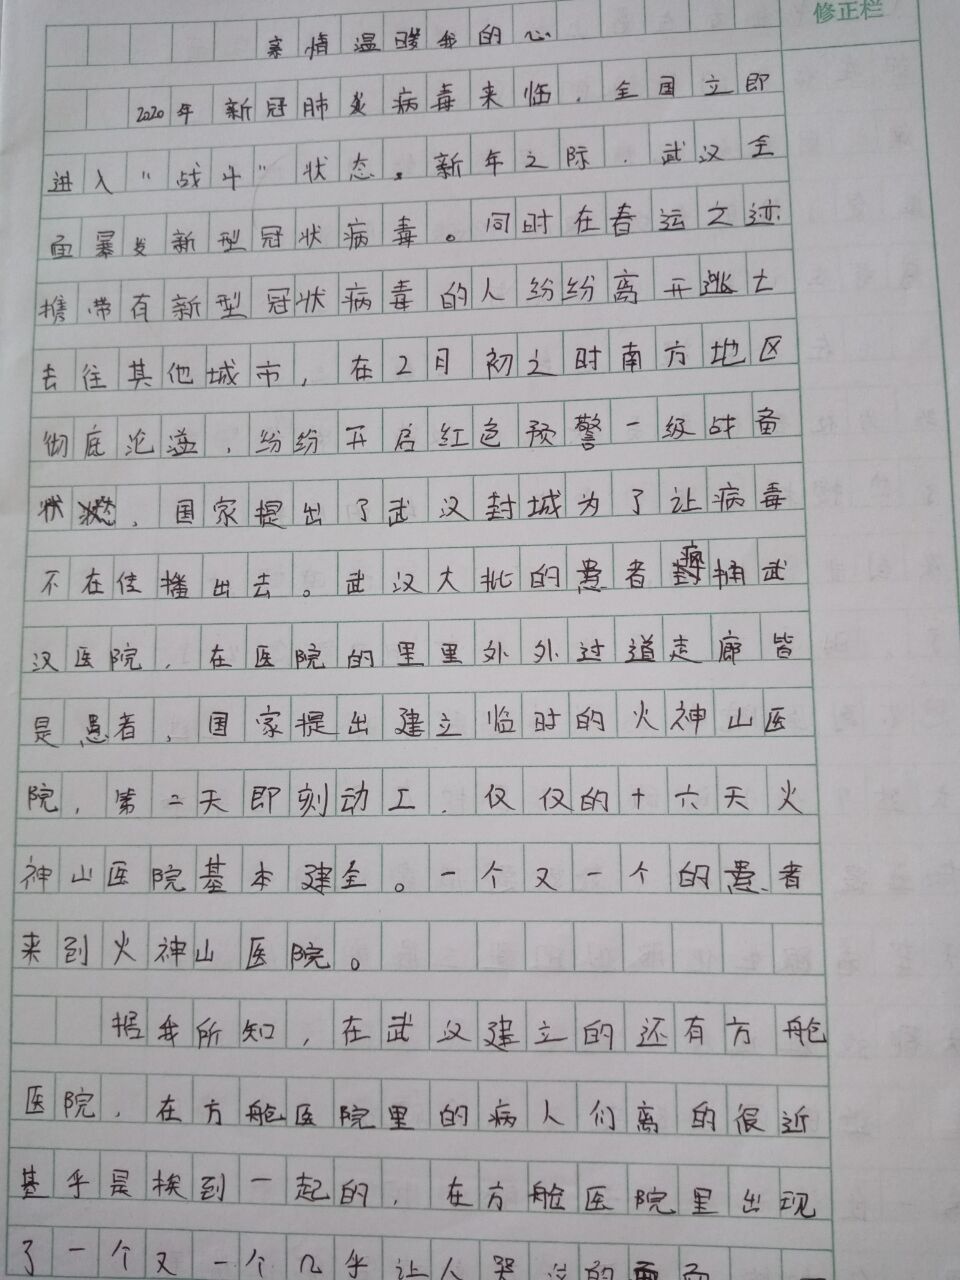 修正栏
亲情温暖我的心
2020年新冠肺炎病毒来临，全国立即
进入“战斗”状态。新年之际，武汉全
面暴发新型冠状病毒。同时在春运之迹
携带有新型冠状病毒的人纷纷离开逃亡
去往其他城市，在2月初之时南方地区
彻底沦溢，纷纷开启红色预警一级战备
状态，国家提出了武汉封城为了让病毒
不在传播出去。武汉大批的患者疯捅武
汉医院，在医院的里里外外过道走廊皆
是患者，国家提出建立临时的火神山医
院，第二天即刻动工，仅仅的十六天火
神山医院基本建全。一个又一个的患者
来到火神山医院。
据我所知，在武汉建立的还有方舱
医院，在方舱医院里的病人们离的很近
基乎是挨到一起的，在方舱医院里出现
了一个又一个几乎让人哭泣的画面